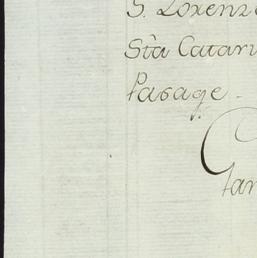 S. Lorenz
Sta Catar
Pasage.